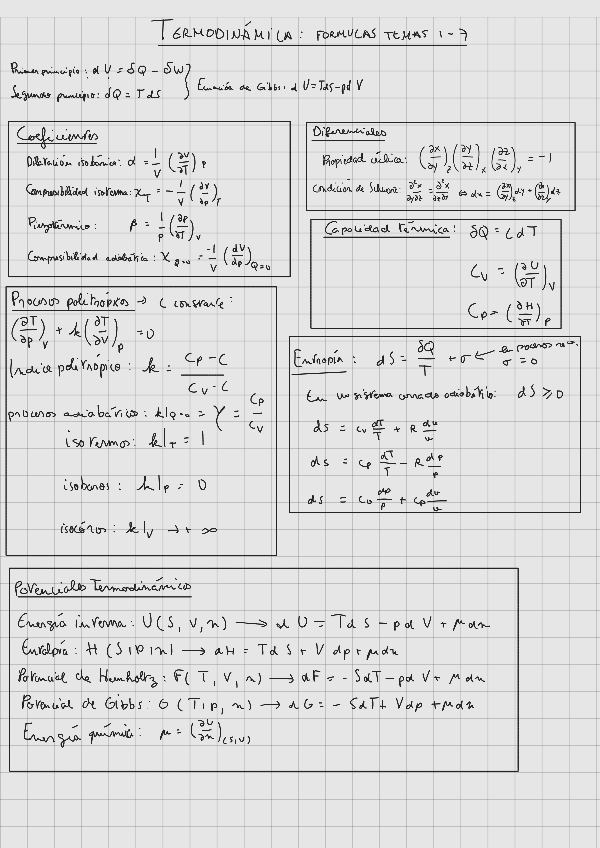 TERMODINÁMICA: FORMULAS TEMAS 1-7
Primer principio: dU = δQ - δW
Segundo principio: δQ = TdS
} Ecuación de Gibbs: dU = TdS - pdV
Coeficientes
Dilatación isobárica: α = 1/V (∂V/∂T)_p
Compresibilidad isoterma: χ_T = - 1/V (∂V/∂p)_T
Piezotérmico: β = 1/p (∂p/∂T)_V
Compresibilidad adiabática: χ_Q=0 = -1/V (dV/dp)_Q=0
Diferenciales
Propiedad cíclica: (∂x/∂y)_z (∂y/∂z)_x (∂z/∂x)_y = -1
Condición de Schwarz: ∂²x/∂y∂z = ∂²x/∂z∂y ⇔ dx = (∂x/∂y)_z dy + (∂x/∂z)_y dz
Capacidad térmica: δQ = C dT
C_V = (∂U/∂T)_V
C_p = (∂H/∂T)_p
Procesos politrópicos → C constante:
(∂T/∂p)_V + k (∂T/∂V)_p = 0
Indice politrópico: k = C_p - C / C_V - C
procesos adiabáticos: k|_Q=0 = γ = C_p/C_V
isotermos: k|_T = 1
isobaros: k|_p = 0
isocóros: k|_V → + ∞
Entropía: dS = δQ/T + σ ← en procesos rev. σ = 0
En un sistema cerrado adiabático: dS ≥ 0
ds = c_v dT/T + R dv/v
ds = c_p dT/T - R dp/p
ds = c_v dp/p + c_p dv/v
Potenciales Termodinámicos
Energía interna: U(S, V, n) → dU = TdS - pdV + μdn
Entalpía: H(S, p, n) → dH = TdS + Vdp + μdn
Potencial de Hemholtz: F(T, V, n) → dF = - SdT - pdV + μdn
Potencial de Gibbs: G(T, p, n) → dG = - SdT + Vdp + μdn
Energía química: μ = (∂U/∂n)_(S,V)